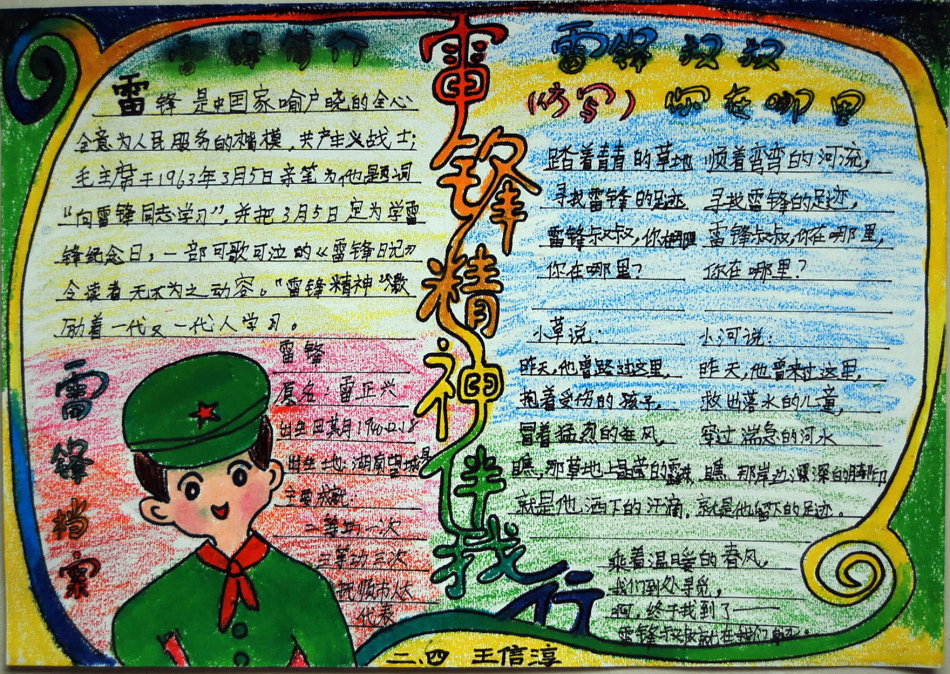 雷锋情行
雷锋是中国家喻户晓的全心
全意为人民服务的楷模，共产主义战士；
毛主席于1963年3月5日亲笔为他题词
“向雷锋同志学习”，并把3月5日定为学雷
锋纪念日，一部可歌可泣的《雷锋日记》
令读者无不为之动容。“雷锋精神”激
励着一代又一代人学习。
雷锋档案
雷锋
原名：雷正兴
出生日期1940.12.18
出生地：湖南望城县
二等功一次
三等功三次
抚顺市人大
代表
雷锋精神伴我行
雷锋叔叔
(仿写) 你在哪里
踏着青青的草地
寻找雷锋的足迹
雷锋叔叔，你在哪里
你在哪里？
小草说：
昨天，他曾路过这里，
抱着受伤的孩子，
冒着猛烈的狂风，
瞧，那草地上晶莹的露珠，
就是他洒下的汗滴，
顺着弯弯的河流，
寻找雷锋的足迹，
雷锋叔叔，你在哪里，
你在哪里？
小河说：
昨天，他曾来过这里，
救出落水的儿童，
穿过湍急的河水
瞧，那岸边深深的脚印
就是他留下的足迹。
乘着温暖的春风，
我们到处寻觅，
啊，终于找到了——
雷锋叔叔就在我们身边。
二.四 王信淳